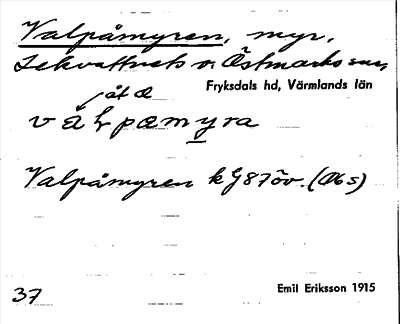 Valpåmyren, myr,
Lekvattnets o. Östmarks snr,
Fryksdals hd, Värmlands län
åt æ
Valpåmyren k G87öv. (Obs)
37
Emil Eriksson 1915